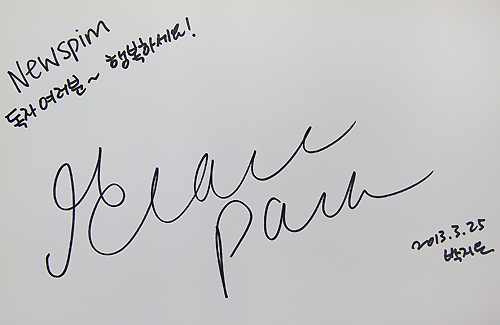 Newspim
독자 여러분~ 행복하세요!
Grace
Park
2013.3.25
박지은